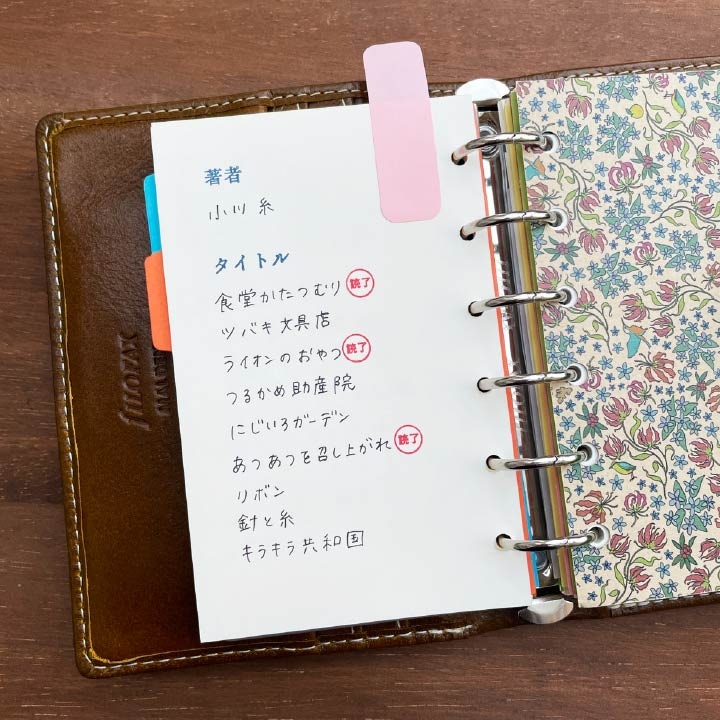 著者
小川 糸
タイトル
食堂かたつむり 読了
ツバキ文具店
ライオンのおやつ 読了
つるかめ助産院
にじいろガーデン
あつあつを召し上がれ 読了
リボン
針と糸
キラキラ共和国
filofax